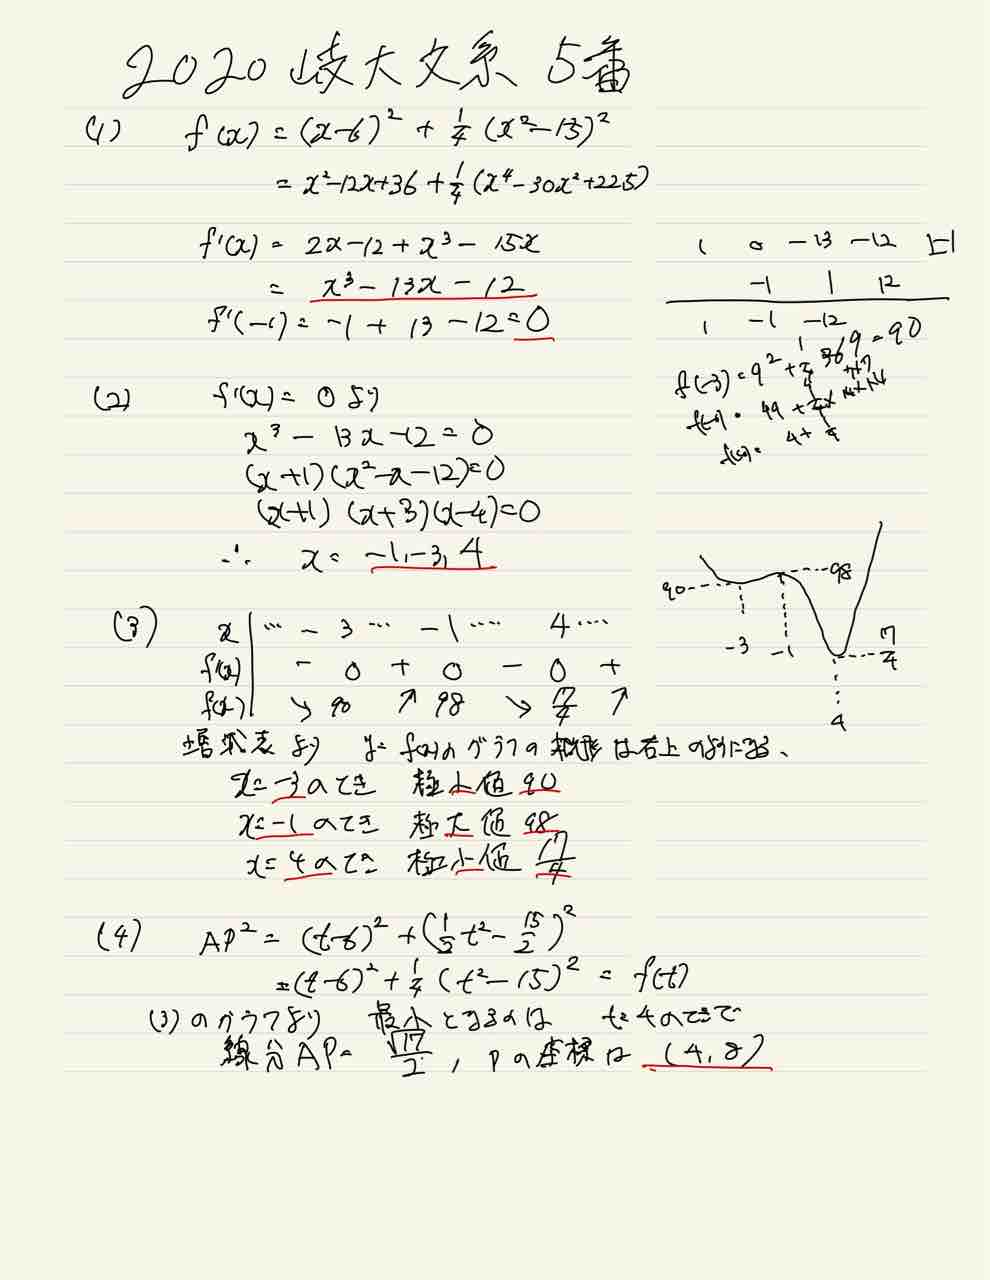 2020 岐大文系 5番
(1) f(x) = (x-6)² + 1/4 (x²-15)²
= x²-12x+36 + 1/4 (x⁴-30x²+225)
f'(x) = 2x-12 + x³ - 15x
= x³ - 13x - 12
f'(-1) = -1 + 13 - 12 = 0
1 0 -13 -12 |-1
-1 1 12
1 -1 -12
f(-3) = 9² + 1/4 36 9 = 90
f(-1) = 49 + 1/4 × 14×14
f(4) = 4 + 1/4
(2) f'(x) = 0 より
x³ - 13x - 12 = 0
(x+1)(x²-x-12)=0
(x+1)(x+3)(x-4)=0
∴ x = -1, -3, 4
90 98
-3 -1 17/4
4
(3) x … -3 … -1 … 4 …
f'(x) - 0 + 0 - 0 +
f(x) ↘ 90 ↗ 98 ↘ 17/4 ↗
増減表より y=f(x)のグラフの概形は右上のようになる、
x=-3のとき 極小値 90
x=-1のとき 極大値 98
x=4のとき 極小値 17/4
(4) AP² = (t-6)² + (1/2 t² - 15/2)²
=(t-6)² + 1/4 (t²-15)² = f(t)
(3)のグラフより 最小となるのは t=4のときで
線分AP= √17/2 , Pの座標は (4, 8)